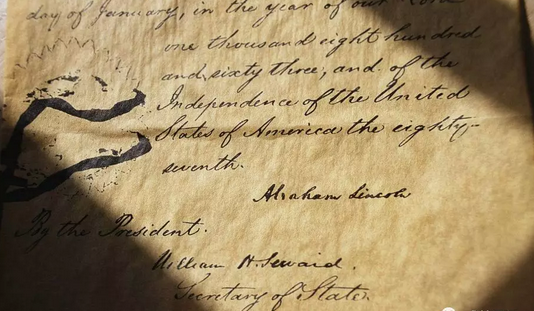 day of January, in the year of our Lord
one thousand eight hundred
and sixty three, and of the
Independence of the United
States of America the eighty-
seventh.
Abraham Lincoln
By the President.
William H. Seward.
Secretary of State.